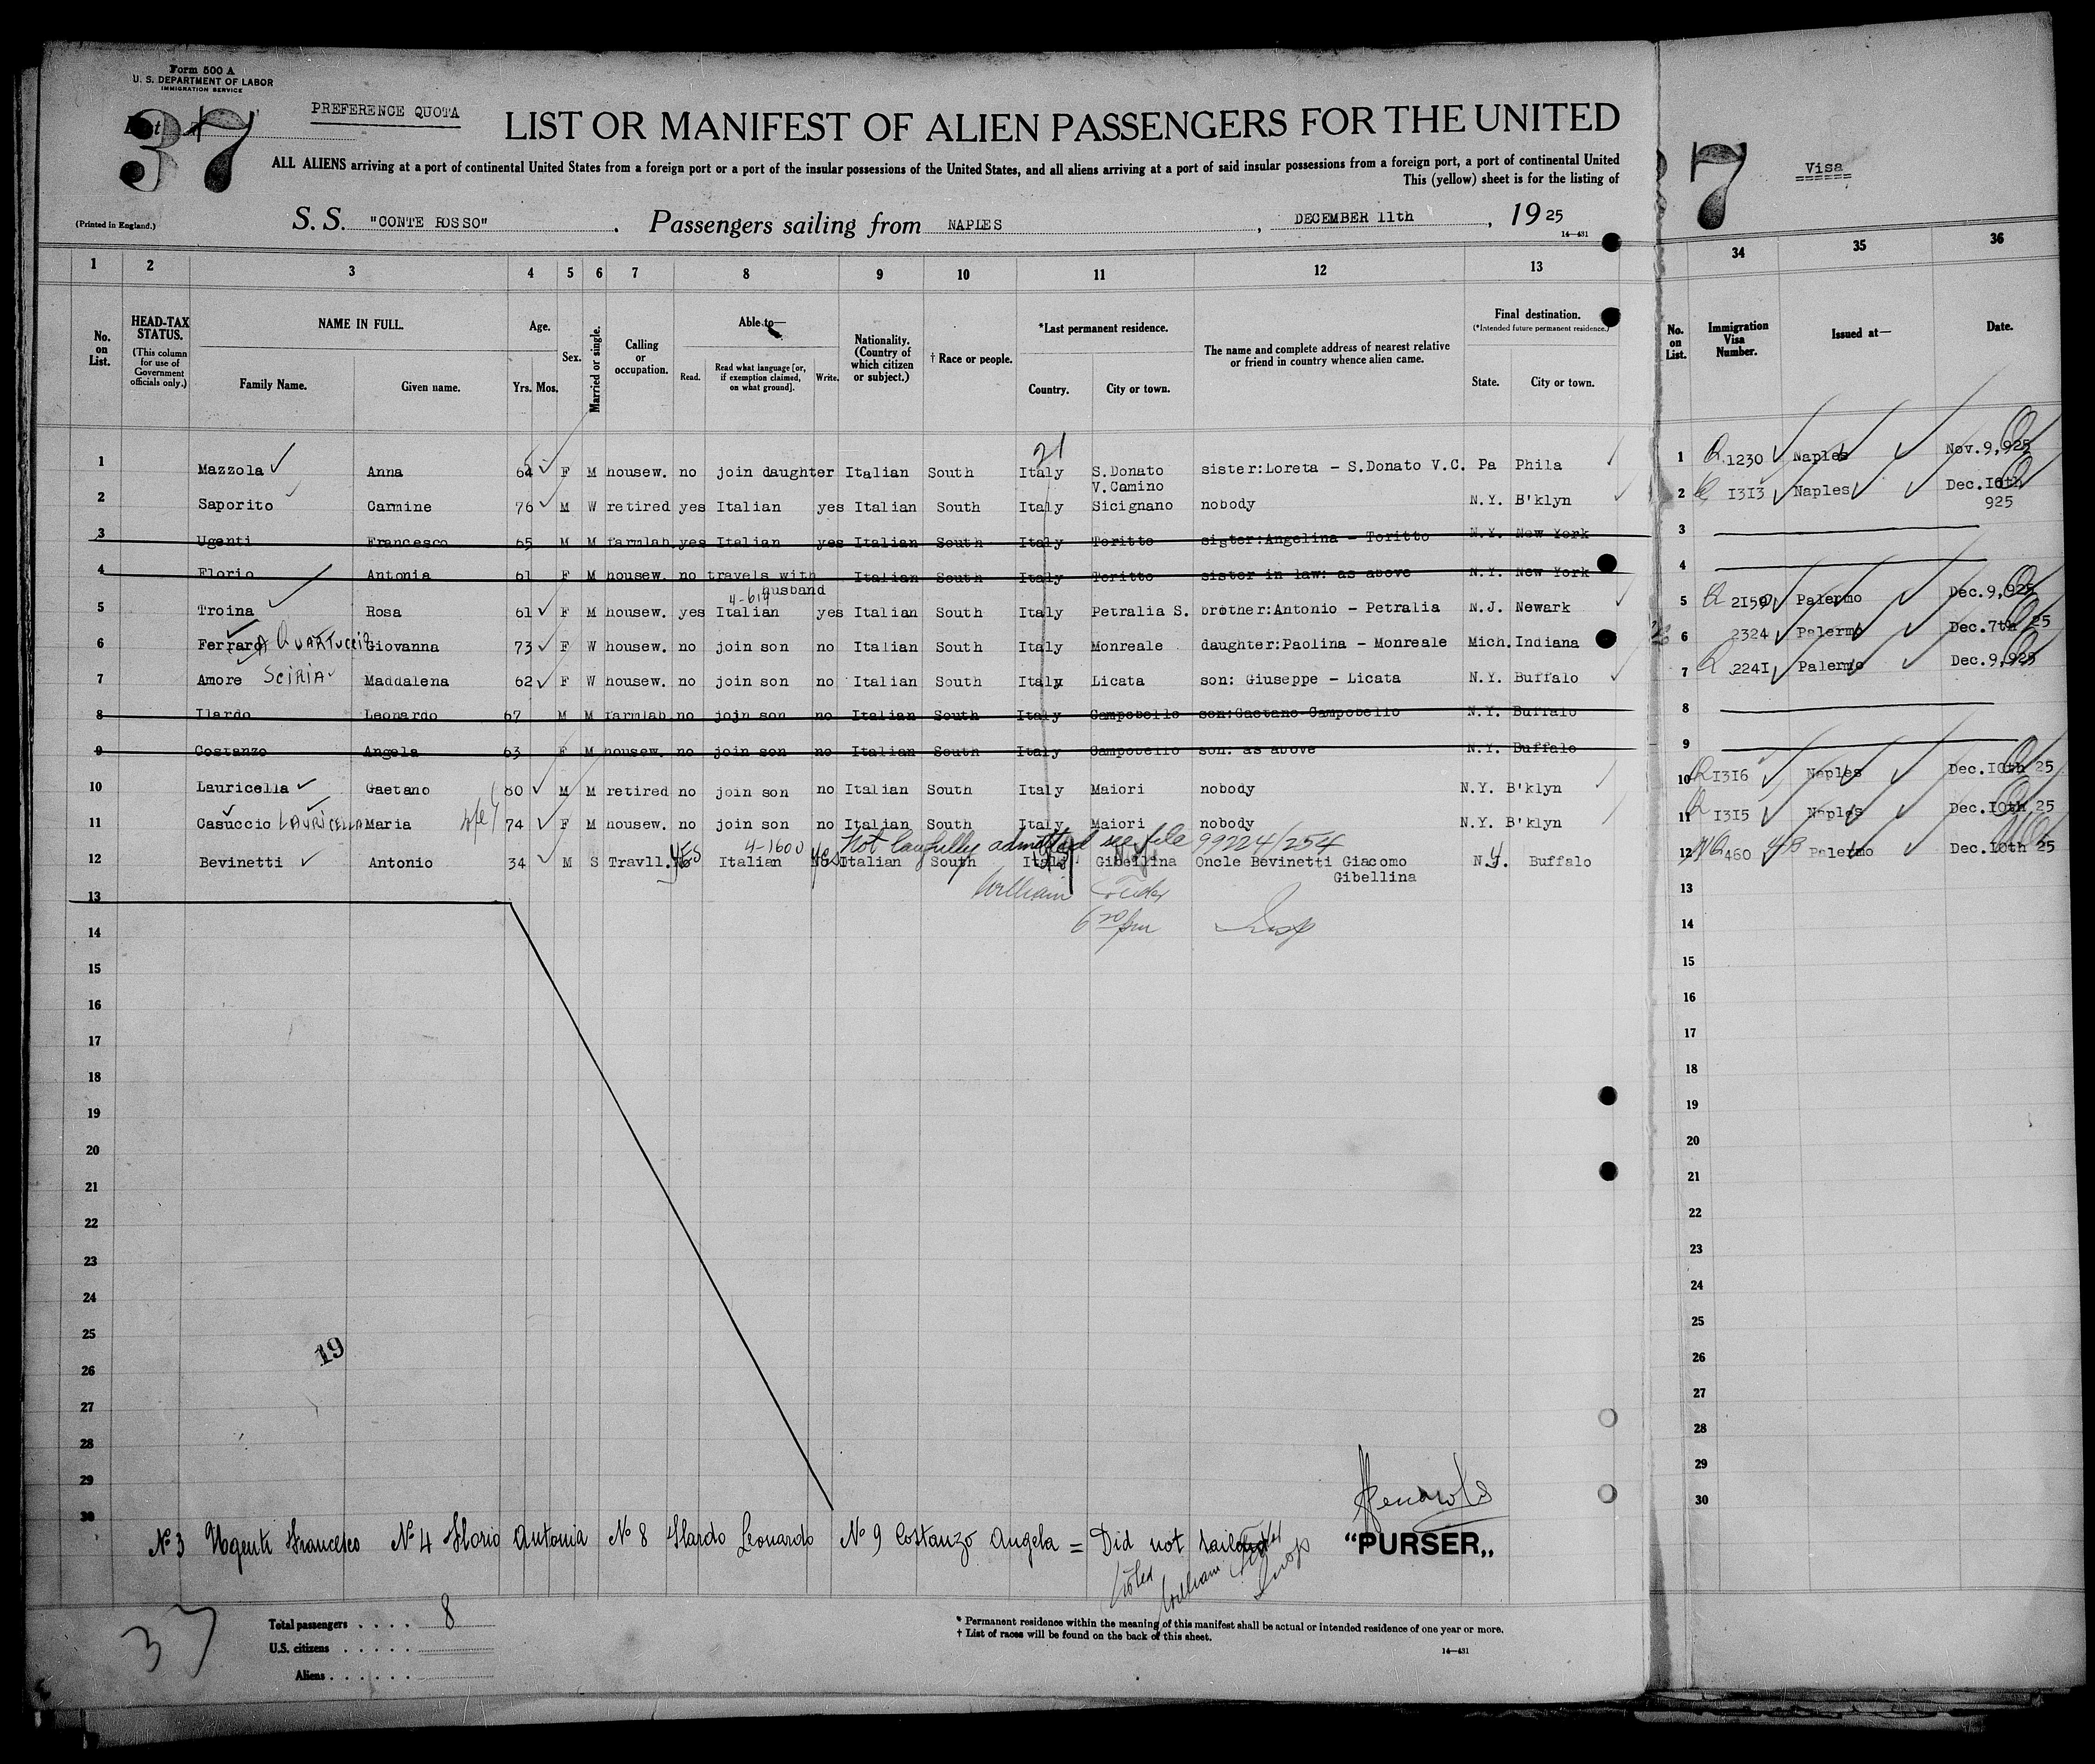 Form 500 A
U. S. DEPARTMENT OF LABOR
IMMIGRATION SERVICE
List 37
PREFERENCE QUOTA
LIST OR MANIFEST OF ALIEN PASSENGERS FOR THE UNITED
ALL ALIENS arriving at a port of continental United States from a foreign port or a port of the insular possessions of the United States, and all aliens arriving at a port of said insular possessions from a foreign port, a port of continental United
This (yellow) sheet is for the listing of
(Printed in England.)
S. S. "CONTE ROSSO" . Passengers sailing from NAPLES , DECEMBER 11th , 19 25
14—431
7 Visa
1 2 3 4 5 6 7 8 9 10 11 12 13 34 35 36
No. on List.
HEAD-TAX STATUS.
(This column for use of Government officials only.)
NAME IN FULL.
Family Name. Given name.
Age.
Yrs. Mos.
Sex.
Married or single.
Calling or occupation.
Able to—
Read. Read what language [or, if exemption claimed, on what ground]. Write.
Nationality. (Country of which citizen or subject.)
† Race or people.
*Last permanent residence.
Country. City or town.
The name and complete address of nearest relative or friend in country whence alien came.
Final destination.
(*Intended future permanent residence.)
State. City or town.
No. on List. Immigration Visa Number. Issued at— Date.
21
1 Mazzola Anna 64 F M housew. no join daughter Italian South Italy S.Donato V.Camino sister:Loreta - S.Donato V.C. Pa Phila 1 1230 Naples Nov.9,925
2 Saporito Carmine 76 M W retired yes Italian yes Italian South Italy Sicignano nobody N.Y. B'klyn 2 I3I3 Naples Dec.10th 925
3 Ugenti Francesco 65 M M farmlab yes Italian yes Italian South Italy Toritto sister:Angelina - Toritto N.Y. New York 3
4 Florio Antonia 61 F M housew. no travels with husband Italian South Italy Toritto sister in law: as above N.Y. New York 4
4-614
5 Troina Rosa 61 F M housew. yes Italian yes Italian South Italy Petralia S. brother:Antonio - Petralia N.J. Newark 5 2I59 Palermo Dec.9,925
6 Ferrara QUARTUCCIO Giovanna 73 F W housew. no join son no Italian South Italy Monreale daughter:Paolina - Monreale Mich. Indiana 6 2324 Palermo Dec.7th 25
7 Amore SCIRIA Maddalena 62 F W housew. no join son no Italian South Italy Licata son: Giuseppe - Licata N.Y. Buffalo 7 224I Palermo Dec.9,925
8 Ilardo Leonardo 67 M M farmlab no join son no Italian South Italy Campobello son:Gaetano-Campobello N.Y. Buffalo 8
9 Costanzo Angela 63 F M housew. no join son no Italian South Italy Campobello son: as above N.Y. Buffalo 9
10 Lauricella Gaetano 80 M M retired no join son no Italian South Italy Maiori nobody N.Y. B'klyn 10 I3I6 Naples Dec.I0th 25
11 Casuccio LAURICELLA Maria wife 74 F M housew. no join son no Italian South Italy Maiori nobody N.Y. B'klyn 11 I3I5 Naples Dec.I0th 25
4-1600 Not lawfully admitted see file 99224/254
12 Bevinetti Antonio 34 M S Travll. YES Italian yes Italian South Italy Gibellina Oncle Bevinetti Giacomo Gibellina N.Y. Buffalo 12 460 Palermo Dec.10th 25
William
6 30 pm Insp
13 13
14 14
15 15
16 16
17 17
18 18
19 19
20 20
21 21
22 22
23 23
24 24
25 25
19
26 26
27 27
28 28
29 29
30 30
No 3 Ugenti Francesco No 4 Florio Antonia No 8 Ilardo Leonardo No 9 Costanzo Angela = Did not sail
"PURSER„
William Insp
37
Total passengers . . . . 8
U.S. citizens . . . . .
Aliens . . . . . .
* Permanent residence within the meaning of this manifest shall be actual or intended residence of one year or more.
† List of races will be found on the back of this sheet.
14—431